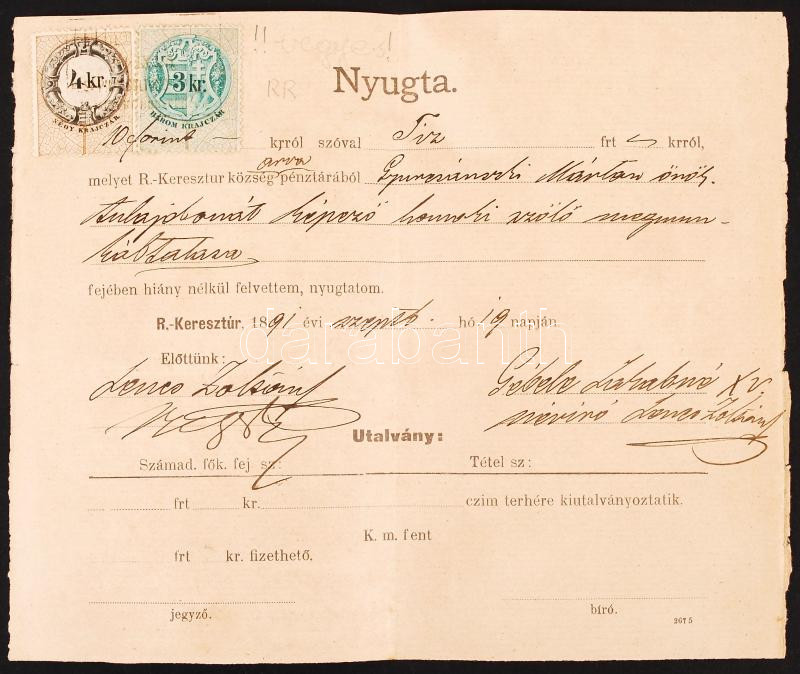 !! vegyes!
4 kr.
NÉGY KRAJCZÁR
3 kr.
HÁROM KRAJCZÁR
RR
Nyugta.
10 forint — kyról szóval Tiz frt krról,
árva
melyet R.-Keresztur község pénztárából Márton örök.
tulajdonát képező homoki szőlő megmun-
fejében hiány nélkül felvettem, nyugtatom.
R.-Keresztúr. 1891 évi szeptb. hó. 19 napján.
darabanth
Előttünk:
Lencs Zoltán Gébele Jakabné XV
névíró Lencs Zoltán
Utalvány:
Számad. fők. fej sz: Tétel sz:
frt kr. czim terhére kiutalványoztatik.
K. m. fent
frt kr. fizethető.
jegyző. biró.
2675